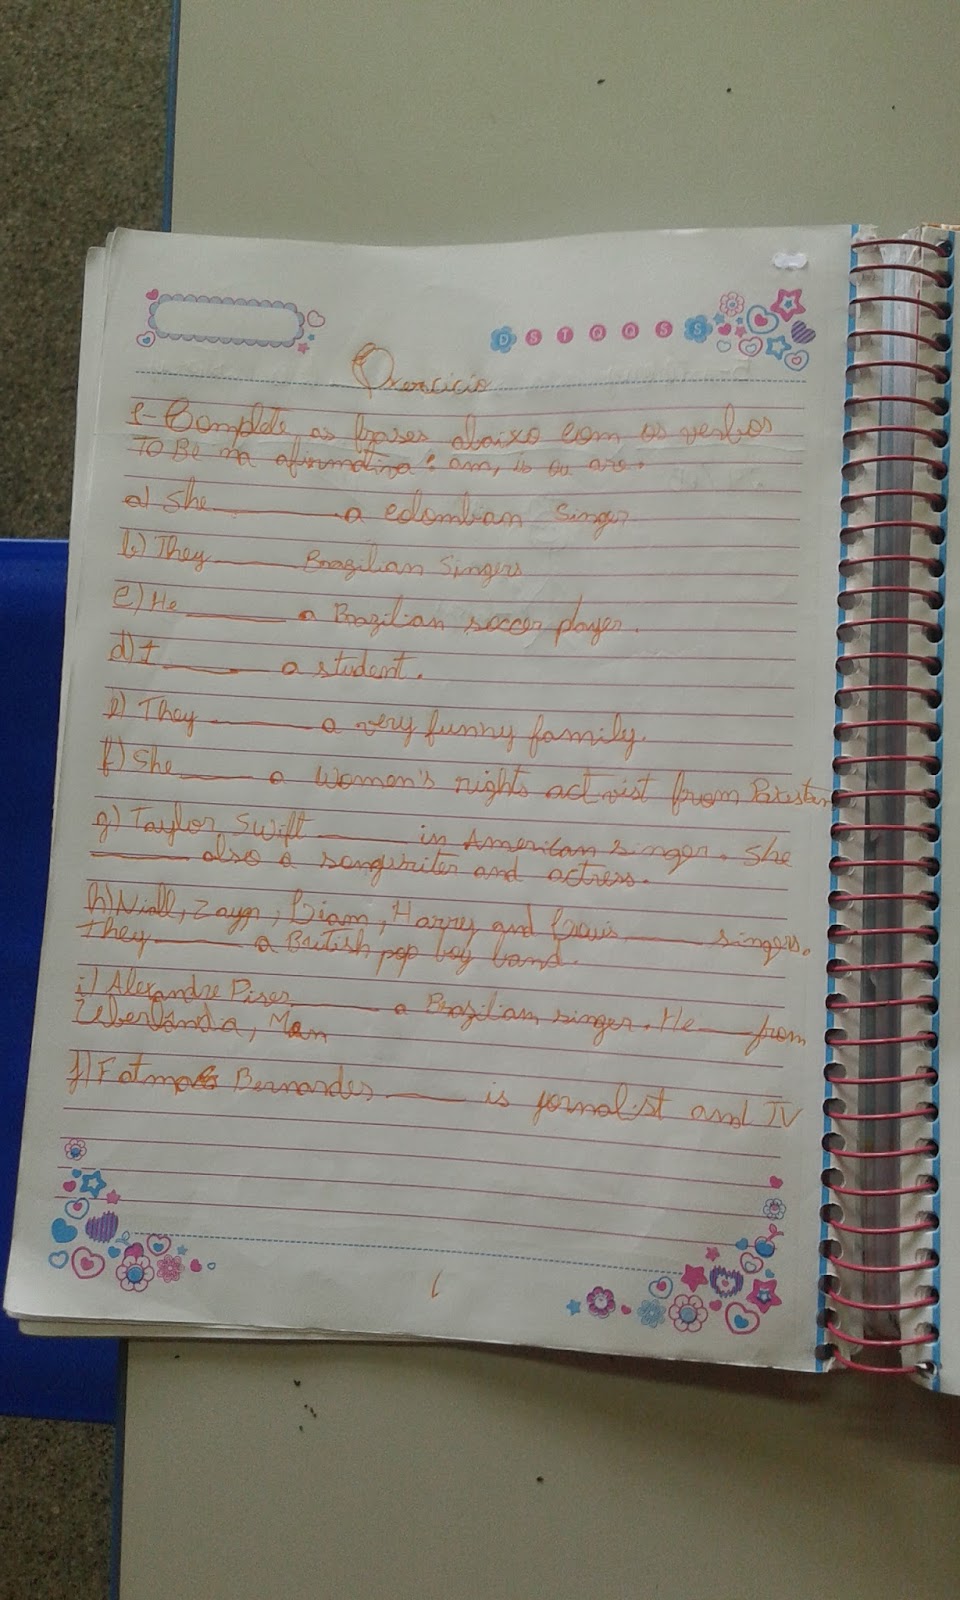 D S T Q Q S S
Exercicio
1- Complete as frases abaixo com os verbos
TO BE na afirmativa: am, is ou are.
a) She ________ a colombian singer
b) They ______ Brazilian Singers
c) He ________ a Brazilian soccer player.
d) I ________ a student.
e) They ________ a very funny family.
f) She _____ a women's rights activist from Pakistan
g) Taylor Swift ______ in American singer. She
_______ also a songwriter and actress.
h) Niall, Zayn, Liam, Harry and Louis ______ singers.
They ______ a British pop boy band.
i) Alexandre Pires ______ a Brazilian singer. He ____ from
Uberlândia,
j) Bernardes _____ is jornalist and TV